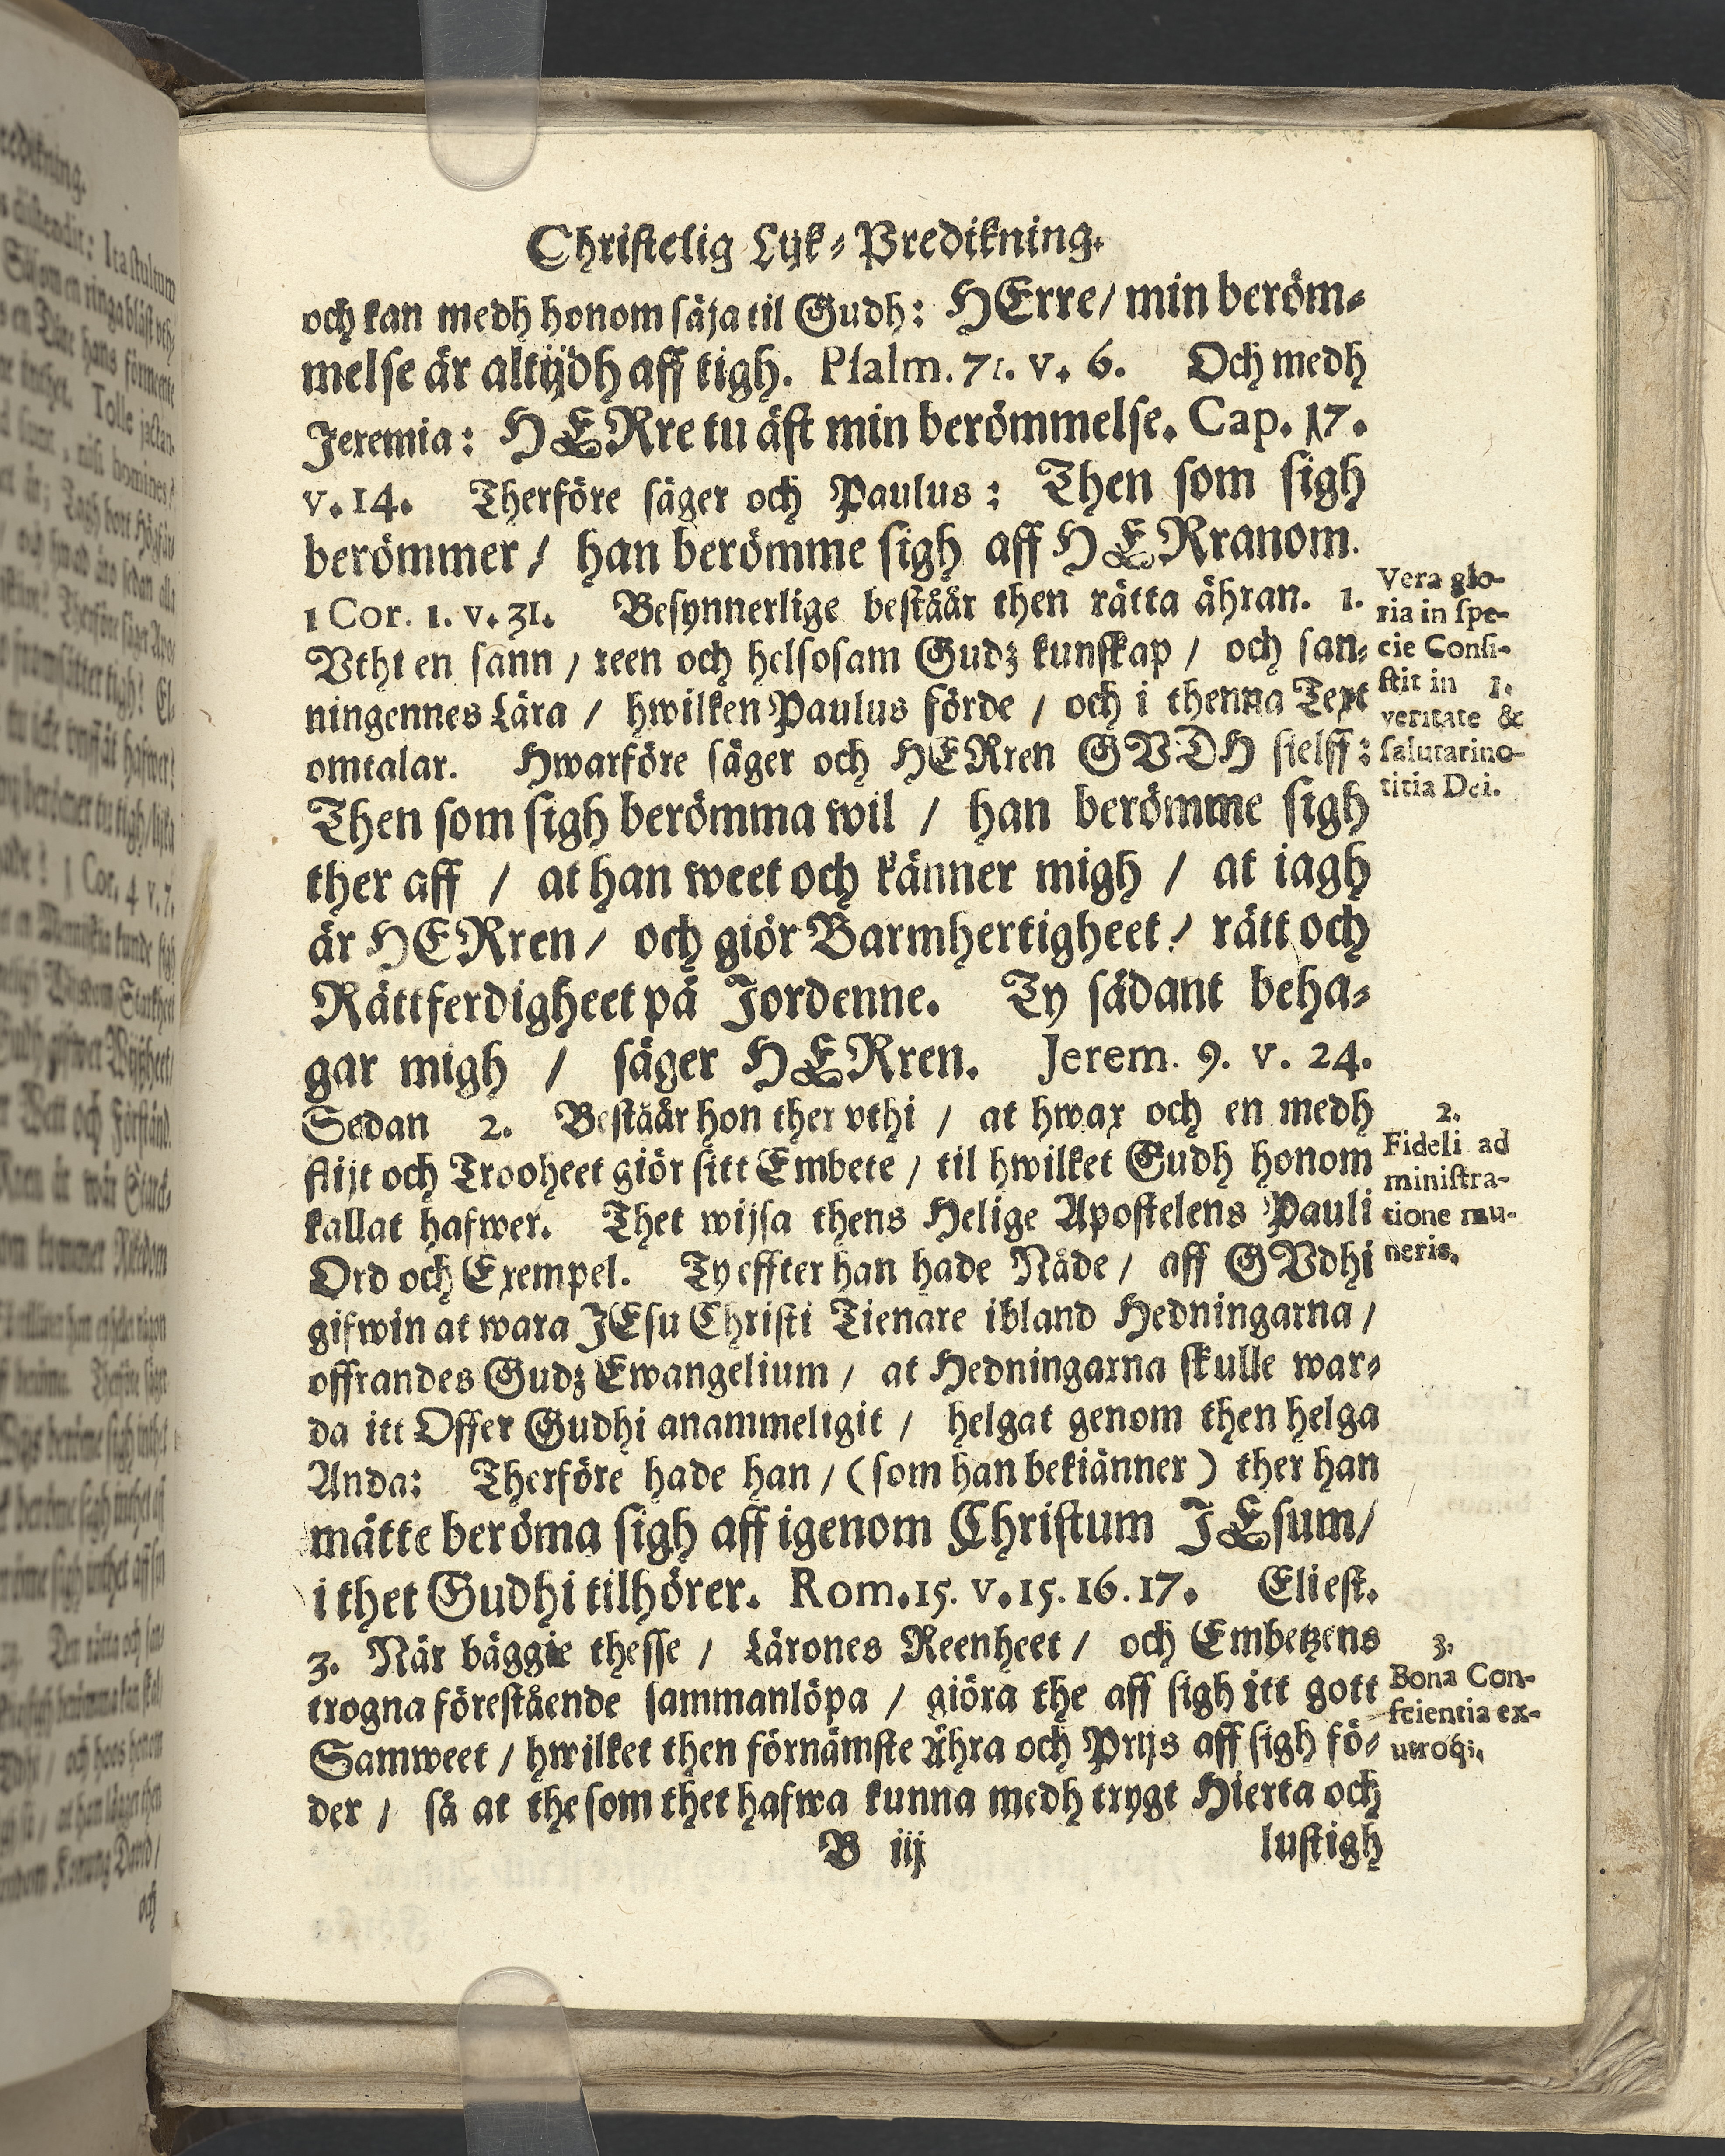 Christelig Lijk-Predikning.
och kan medh honom säja til Gudh: HErre/ min beröm-
melse är altijdh aff tigh. Psalm. 71. v. 6. Och medh
Jeremia: HERre tu äst min berömmelse. Cap. 17.
v. 14. Therföre säger och Paulus: Then som sigh
berömmer/ han berömme sigh aff HERranom.
1 Cor. 1. v. 31. Besynnerlige beståår then rätta ähran. 1.
Vthi en sann / reen och helsosam Gudz kunskap / och san-
ningennes Lära / hwilken Paulus förde / och i thenna Text
omtalar. Hwarföre säger och HERren GVDH sielff:
Then som sigh berömma wil / han berömme sigh
ther aff / at han weet och känner migh / at iagh
är HERren/ och giör Barmhertigheet/ rätt och
Rättferdigheet på Jordenne. Ty sådant beha-
gar migh / säger HERren. Jerem. 9. v. 24.
Sedan 2. Beståår hon ther vthi / at hwar och en medh
flijt och Trooheet giör sitt Embete / til hwilket Gudh honom
kallat hafwer. Thet wijsa thens Helige Apostelens Pauli
Ord och Exempel. Ty effter han hade Nåde / aff GVdhi
gifwin at wara JEsu Christi Tienare ibland Hedningarna /
offrandes Gudz Ewangelium / at Hedningarna skulle war-
da itt Offer Gudhi anammeligit / helgat genom then helga
Anda: Therföre hade han / (som han bekiänner) ther han
måtte beröma sigh aff igenom Christum JEsum/
i thet Gudhi tilhörer. Rom. 15. v. 15. 16. 17. Eliest.
3. När bäggie thesse / Lärones Reenheet / och Embetzens
trogna förestående sammanlöpa / giöra the aff sigh itt gott
Samweet / hwilket then förnämste Ähra och Prijs aff sigh fö-
der / så at the som thet hafwa kunna medh trygt Hierta och
B iij lustigh
Vera glo-
ria in spe-
cie Consi-
stit in 1.
veritate &
salutari no-
titia Dei.
2.
Fideli ad
ministra-
tione mu-
neris.
3.
Bona Con-
scientia ex-
utroq;.